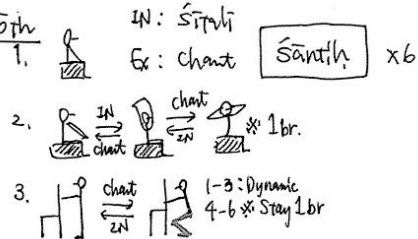 5th
1. IN: Śītalī
Ex: Chant Śāntiḥ x6
2. IN chant chant IN ※ 1br.
3. chant IN 1-3: Dynamic
4-6 ※ Stay 1br